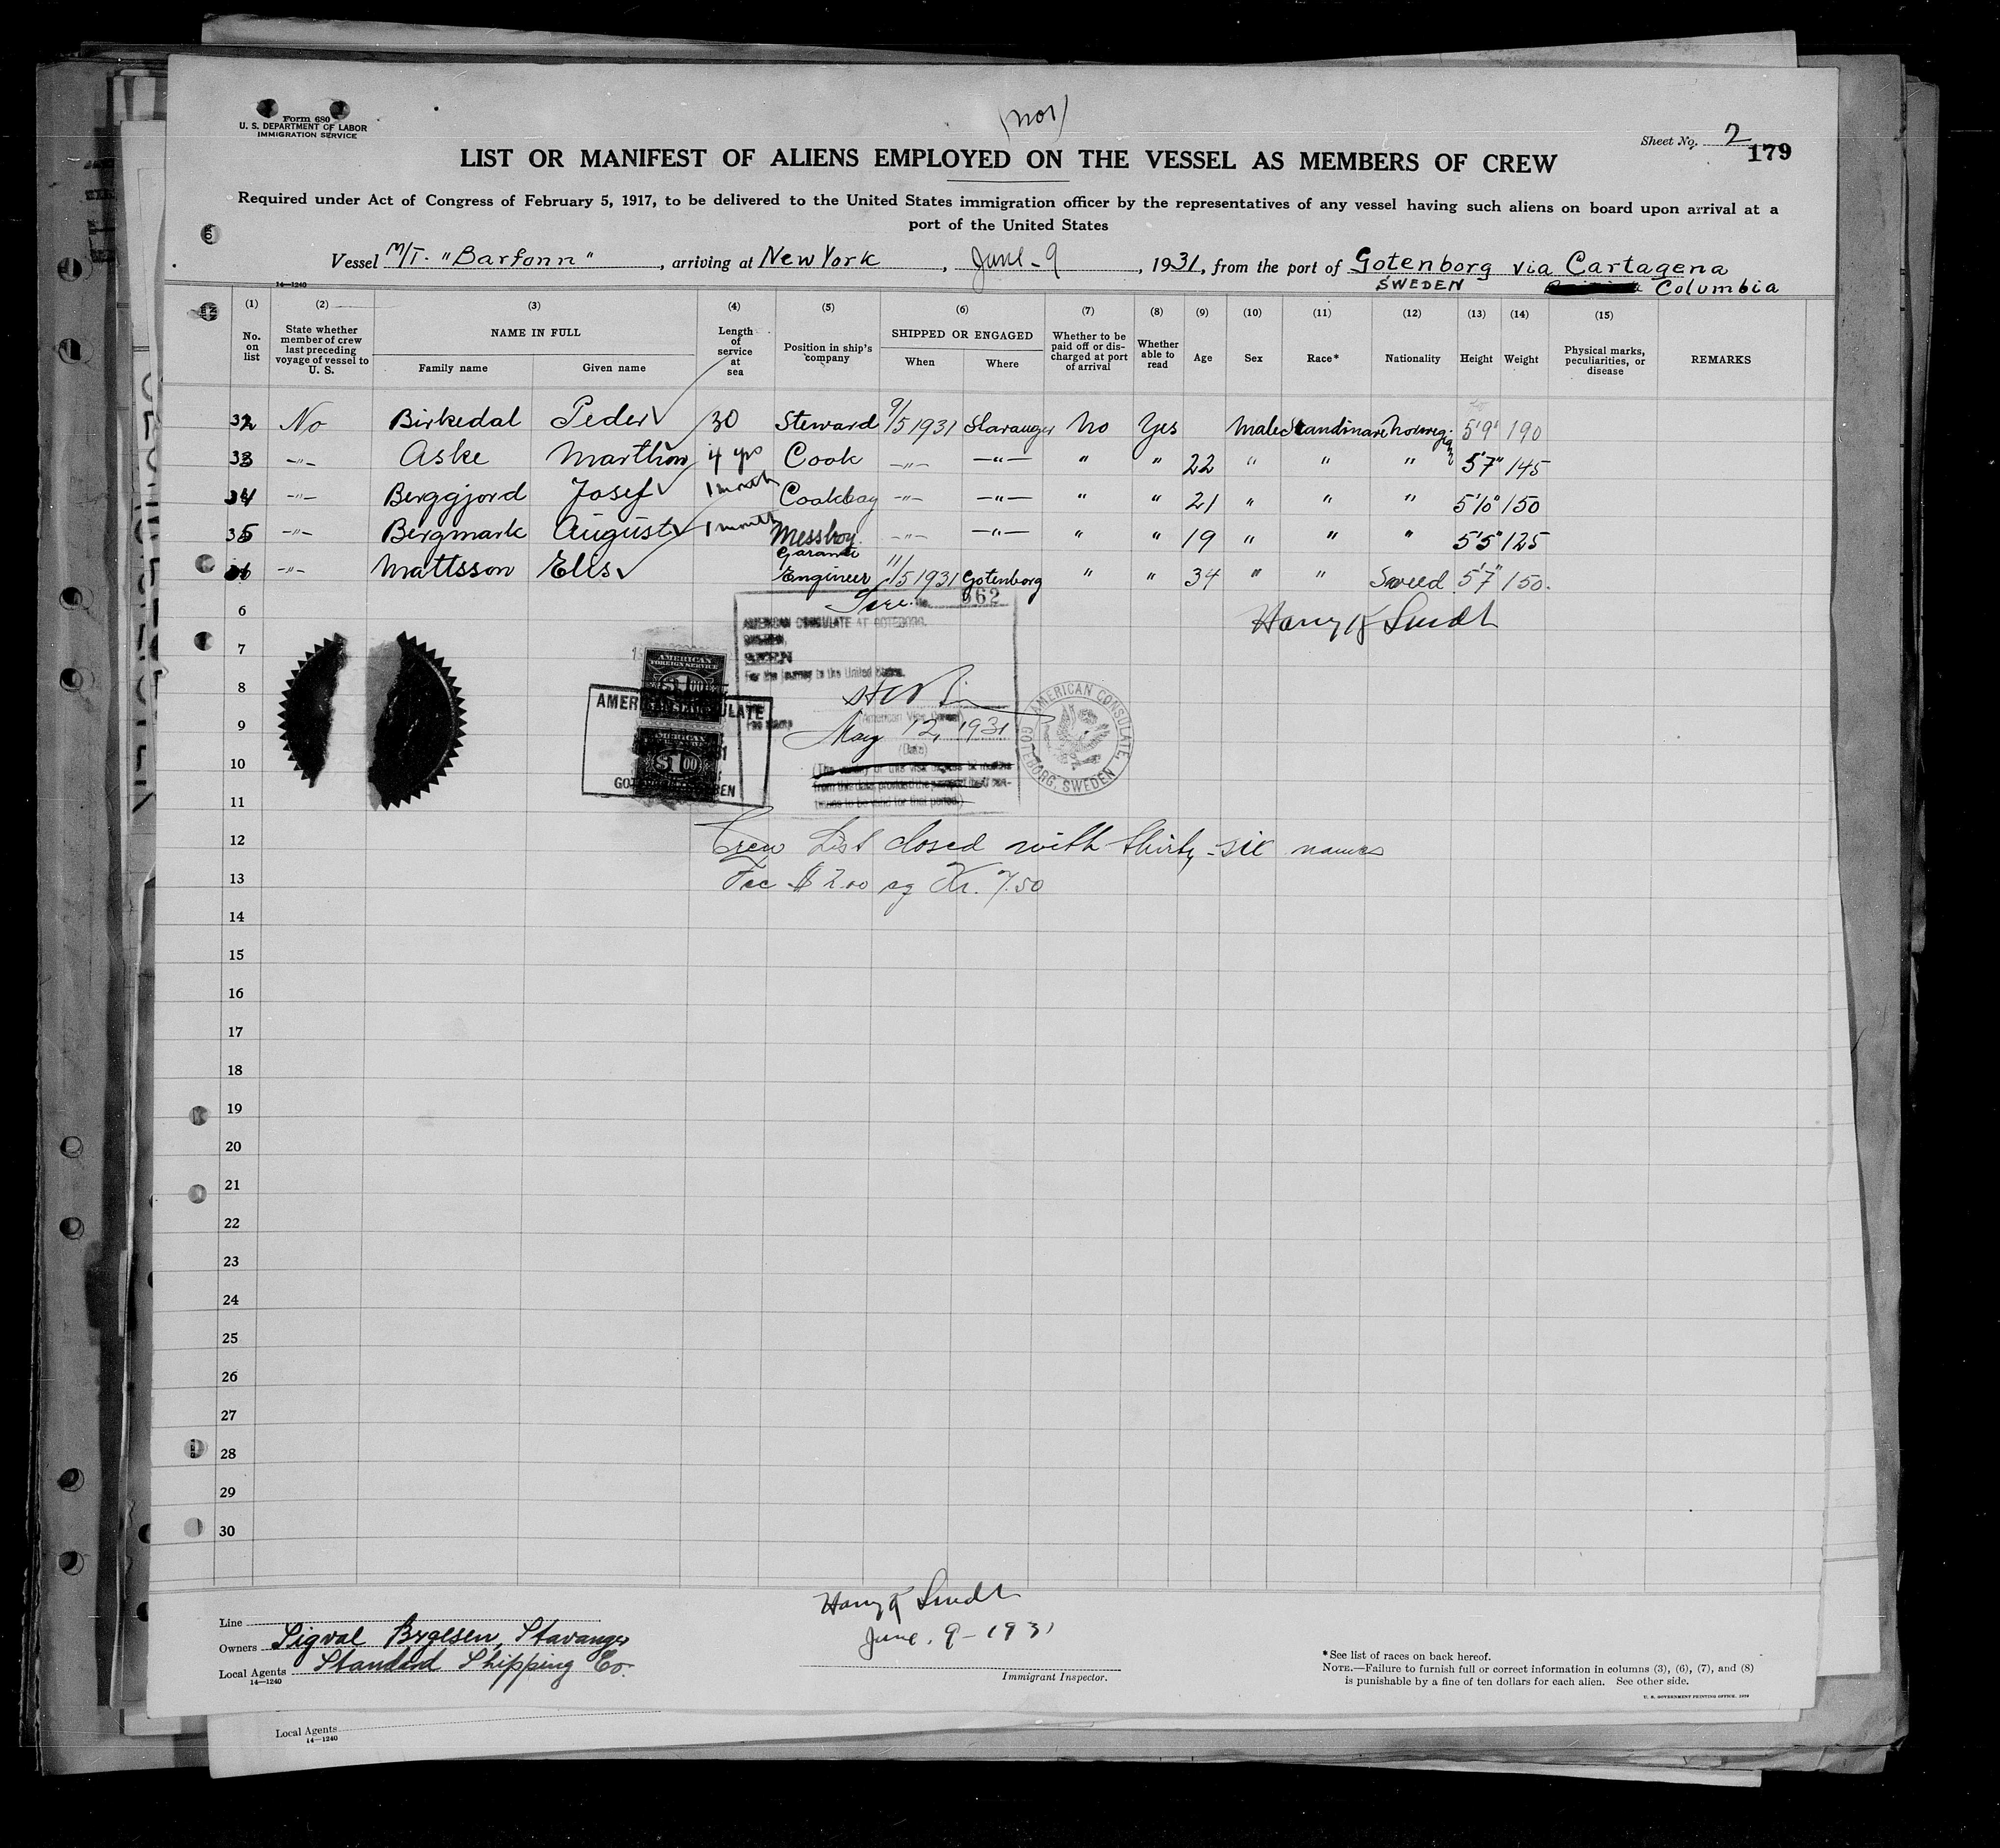 Form 680
U. S. DEPARTMENT OF LABOR
IMMIGRATION SERVICE
(nor)
Sheet No. 2
179
LIST OR MANIFEST OF ALIENS EMPLOYED ON THE VESSEL AS MEMBERS OF CREW
Required under Act of Congress of February 5, 1917, to be delivered to the United States immigration officer by the representatives of any vessel having such aliens on board upon arrival at a
port of the United States
Vessel M/T. "Barfonn", arriving at New York, June - 9, 1931, from the port of Gotenborg via Cartagena
SWEDEN Columbia
14—1240
(1) (2) (3) (4) (5) (6) (7) (8) (9) (10) (11) (12) (13) (14) (15)
No. on list
State whether member of crew last preceding voyage of vessel to U. S.
NAME IN FULL
Family name
Given name
Length of service at sea
Position in ship's company
SHIPPED OR ENGAGED
When
Where
Whether to be paid off or discharged at port of arrival
Whether able to read
Age
Sex
Race*
Nationality
Height
Weight
Physical marks, peculiarities, or disease
REMARKS
32 No Birkedal Peder 30 Steward 9/5 1931 Stavanger No Yes Male Scandinavi Norwegian 5'9" 190
33 -"- Aske Marthon 4 yrs Cook -"- -"- " " 22 " " " 5'7" 145
34 -"- Berggjord Josef 1 month Cooksboy -"- -"- " " 21 " " " 5'10" 150
35 -"- Bergmark August 1 month Messboy -"- -"- " " 19 " " " 5'5" 125
36 -"- Mattsson Elis Garanti Engineer 11/5 1931 Gotenborg " " 34 " " Sweed 5'7" 150.
6
No. 362
Harry Lundh
AMERICAN CONSULATE AT GOTEBORG,
SWEDEN,
SEEN
For the journey to the United States.
7
8
AMERICAN
FOREIGN SERVICE
$1.00
AMERICAN CONSULATE
9
(American Vice Consul)
May 12, 1931
(Date)
AMERICAN
$1.00
GOTEBORG, SWEDEN
AMERICAN CONSULATE, GOTEBORG, SWEDEN
10
11
12
Crew List closed with thirty-six names
13
Fee $ 2.00 eq Kr. 7.50
14
15
16
17
18
19
20
21
22
23
24
25
26
27
28
29
30
Line
Owners Sigval Bergesen, Stavanger
Local Agents Standard Shipping Co.
14—1240
Harry Lundh
June. 9 - 1931
Immigrant Inspector.
*See list of races on back hereof.
NOTE.—Failure to furnish full or correct information in columns (3), (6), (7), and (8)
is punishable by a fine of ten dollars for each alien. See other side.
U. S. GOVERNMENT PRINTING OFFICE: 1929
Local Agents
14—1240